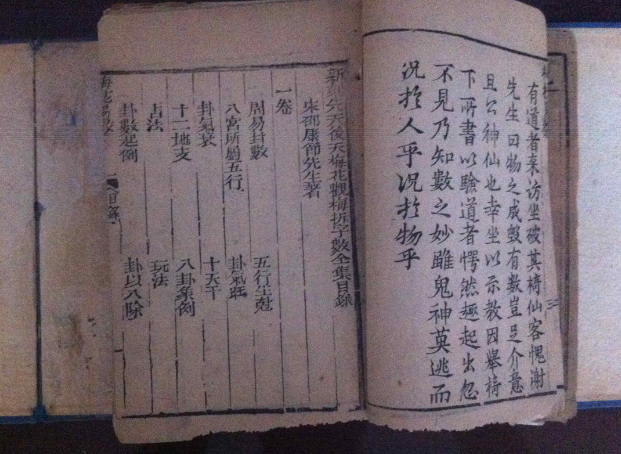 有道者来訪坐破其椅仙客愧謝
先生曰物之成毀有數豈足介意
且公神仙也幸坐以示教因舉椅
下所書以驗道者愕然趨起出忽
不見乃知數之妙雖鬼神莫逃而
况於人乎况於物乎
新刻先天後天梅花觀梅拆字數全集目錄
宋邵康節先生著
一卷
周易卦數 五行生尅
八宮所屬五行 卦氣旺
卦氣衰 十天干
十二地支 八卦象例
占法 玩法
卦數起例 卦以八除
梅花易數 目錄